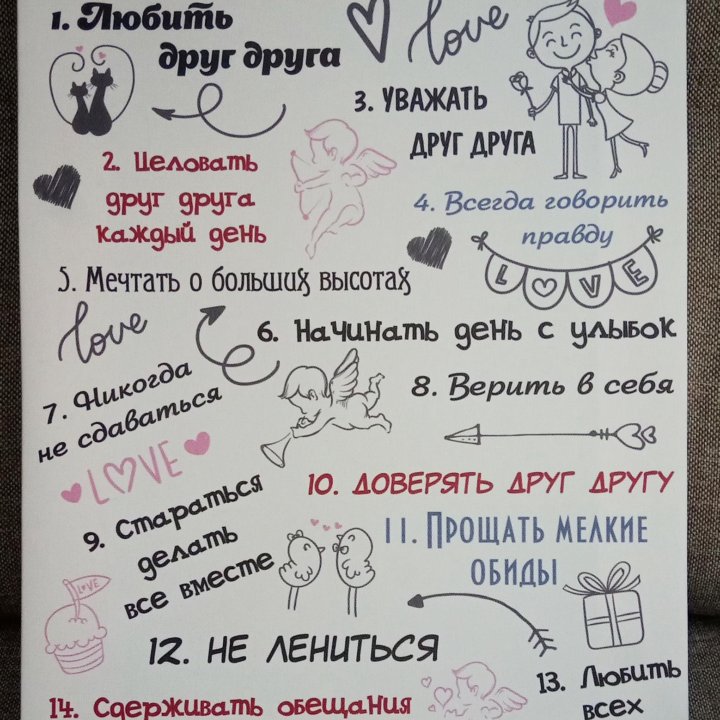 1. Любить
друг друга
love
3. УВАЖАТЬ
ДРУГ ДРУГА
2. Целовать
друг друга
каждый день
4. Всегда говорить
правду
LOVE
5. Мечтать о больших высотах
love
6. Начинать день с улыбок
7. Никогда
не сдаваться
8. Верить в себя
LOVE
10. ДОВЕРЯТЬ ДРУГ ДРУГУ
9. Стараться
делать
все вместе
11. ПРОЩАТЬ МЕЛКИЕ
ОБИДЫ
LOVE
12. НЕ ЛЕНИТЬСЯ
13. Любить
всех
14. Сдерживать обещания